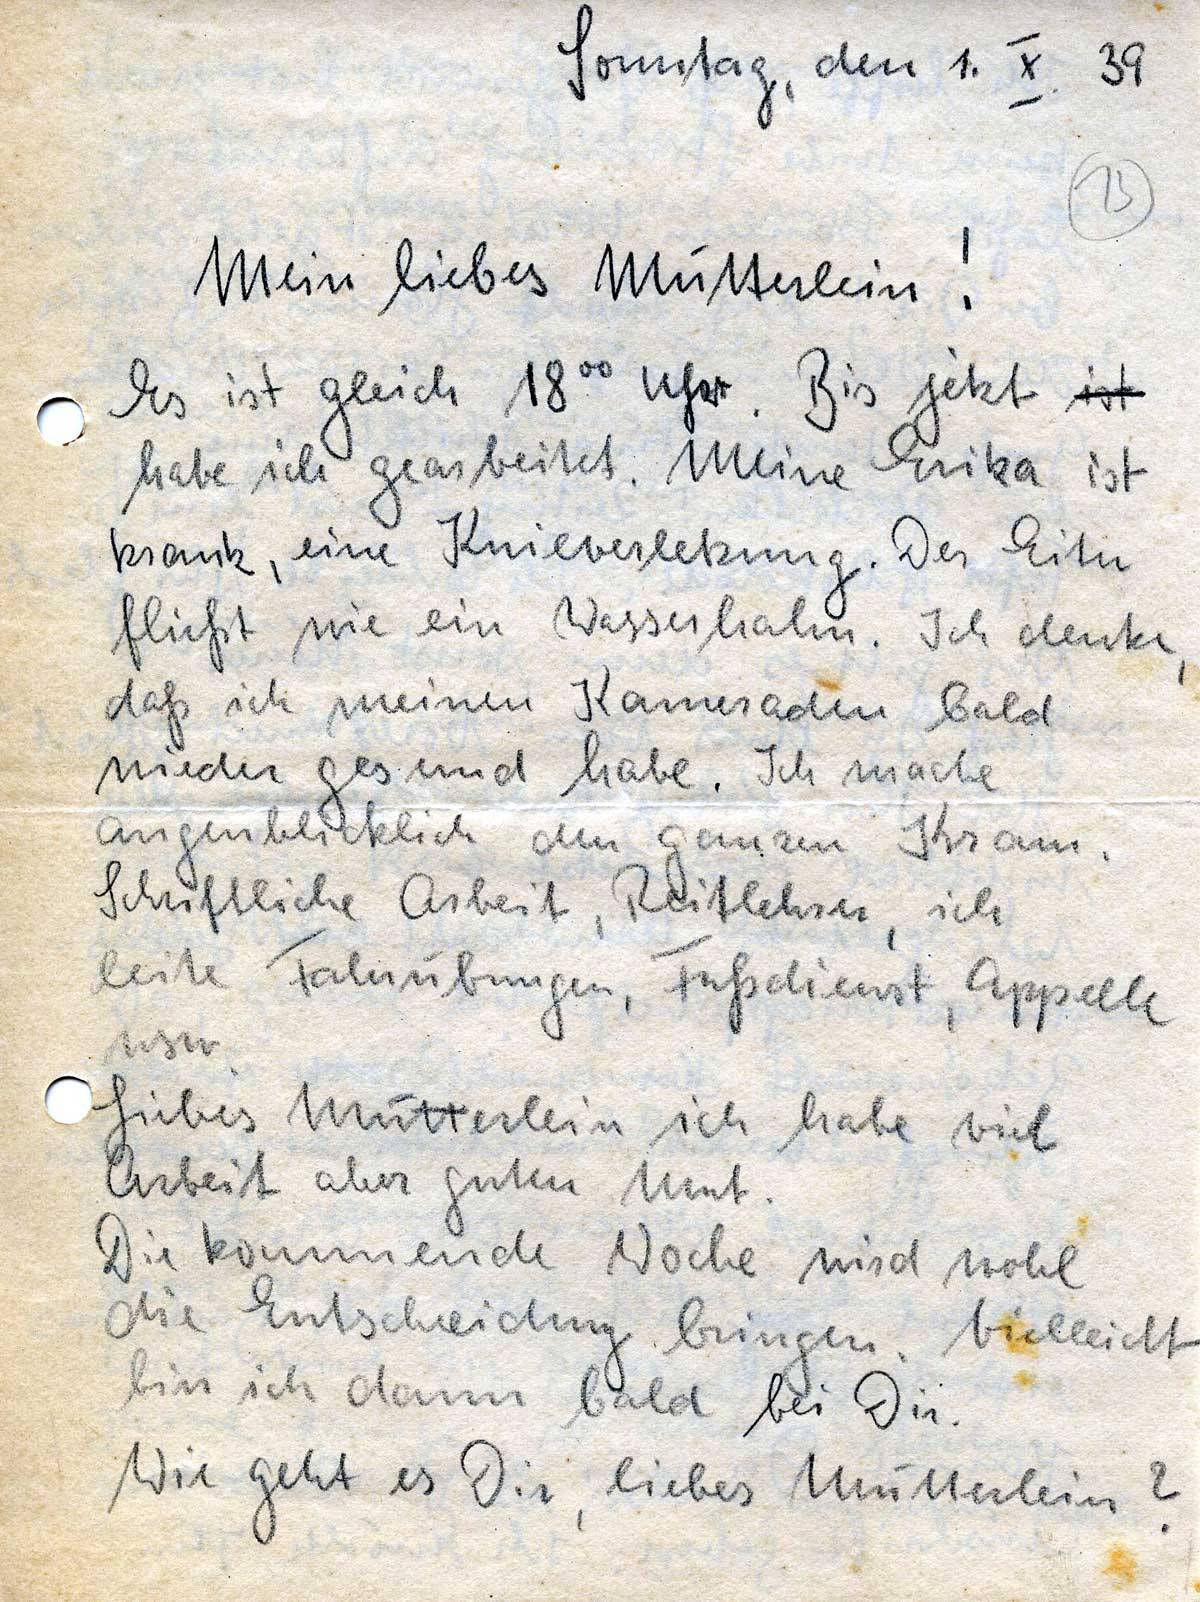 Sonntag, den 1. X. 39
13
Mein liebes Mütterlein!
Es ist gleich 18⁰⁰ Uhr. Bis jetzt ist
habe ich gearbeitet. Meine Erika ist
krank, eine Knieverletzung. Der Eiter
fließt wie ein Wasserhahn. Ich denke,
daß ich meinen Kameraden bald
wieder gesund habe. Ich mache
augenblicklich den ganzen Kram.
Schriftliche Arbeit, Reitlehrer, ich
leite Fahrübungen, Fußdienst, Appelle
usw.
Liebes Mütterlein ich habe viel
Arbeit aber guten Mut.
Die kommende Woche wird wohl
die Entscheidung bringen. Vielleicht
bin ich dann bald bei Dir.
Wie geht es Dir, liebes Mütterlein?